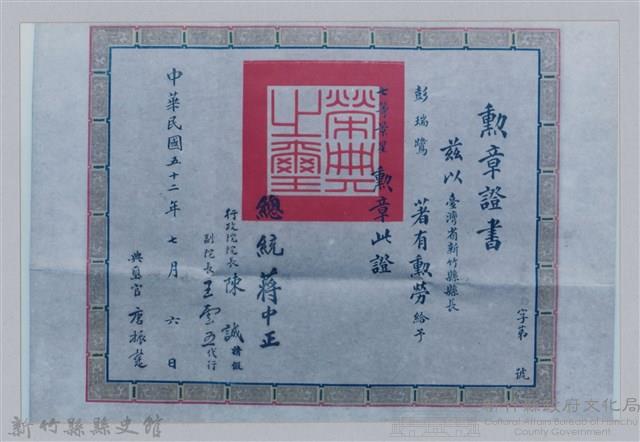 勲章證書
字第　　號
茲以臺灣省新竹縣縣長
彭瑞鷺　著有勲勞給予
七等景星勲章此證
榮典之璽
總統蔣中正
行政院院長陳誠請假
副院長王雲五代行
中華民國五十二年七月六日
典璽官唐振楚
新竹縣縣史館
新竹縣政府文化局
Cultural Affairs Bureau of Hsinchu
County Government